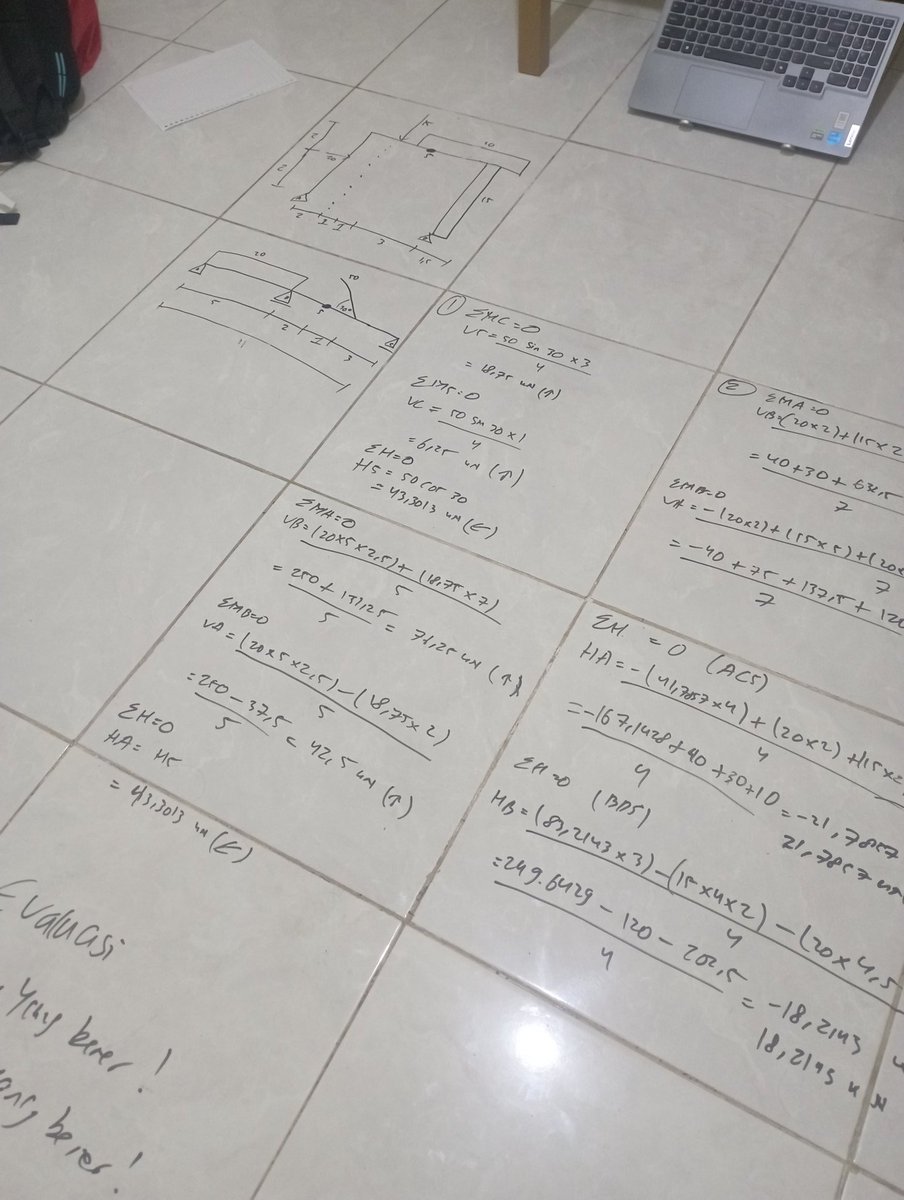 15
10
S
2
2
20
15
2
1
1
3
1,5
20
50
30°
S
5
2
1
3
11
① ΣMC=0
VS = 50 sin 30 × 3
4
= 18,75 kN (↑)
ΣMS=0
VC = 50 sin 30 × 1
4
= 6,25 kN (↑)
ΣH=0
HS = 50 cos 30
= 43,3013 kN (←)
ΣMA=0
VB = (20×5×2,5) + (18,75 × 7)
5
= 250 + 131,25
5
= 76,25 kN (↑)
ΣMB=0
VA = (20×5×2,5) − (18,75 × 2)
5
= 250 − 37,5
5
= 42,5 kN (↑)
ΣH=0
HA = HS
= 43,3013 kN (←)
② ΣMA=0
VB = (20×2) + (15×2
= 40 + 30 + 632,5
7
ΣMB=0
VA = −(20×2) + (15×5) + (20×
7
= −40 + 75 + 137,5 + 120
7
ΣH = 0 (ACS)
HA = −(41,7857×4) + (20×2) + (15×2
4
= −167,1428 + 40 + 30 + 10
4
= −21,7857
21,7857 kN
ΣH=0 (BDS)
HB = (83,2143×3) − (15×4×2) − (20×4,5
4
= 249.6429 − 120 − 202,5
4
= −18,2143
18,2143 kN
Evaluasi
Yang berer!
berer!